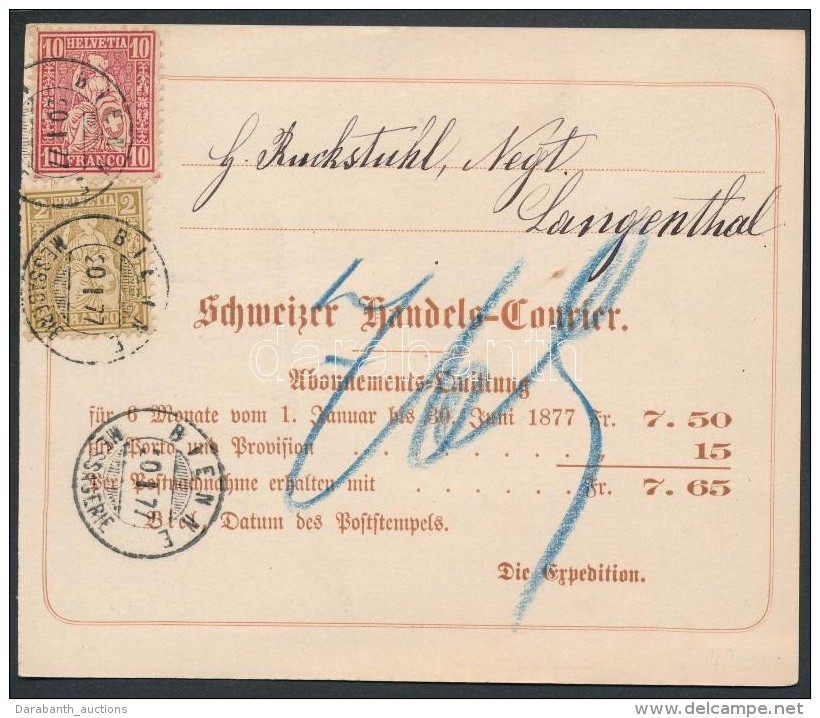 10 HELVETIA 10
10 FRANCO 10
2 HELVETIA 2
FRANCO
BIENNE
20 I 77
MESSAGERIE
H. Ruckstuhl, Negt.
Langenthal
Schweizer Handels-Courier.
Abonnements-Quittung
für 6 Monate vom 1. Januar bis 30. Juni 1877 Fr. 7. 50
für Porto und Provision . . . . . . . . . „ 15
Per Postnachnahme erhalten mit . . . . . . Fr. 7. 65
Biel, Datum des Poststempels.
Die Expedition.
765
BIENNE
20 I 77
MESSAGERIE
darabanth
Darabanth_auctions
www.delcampe.net